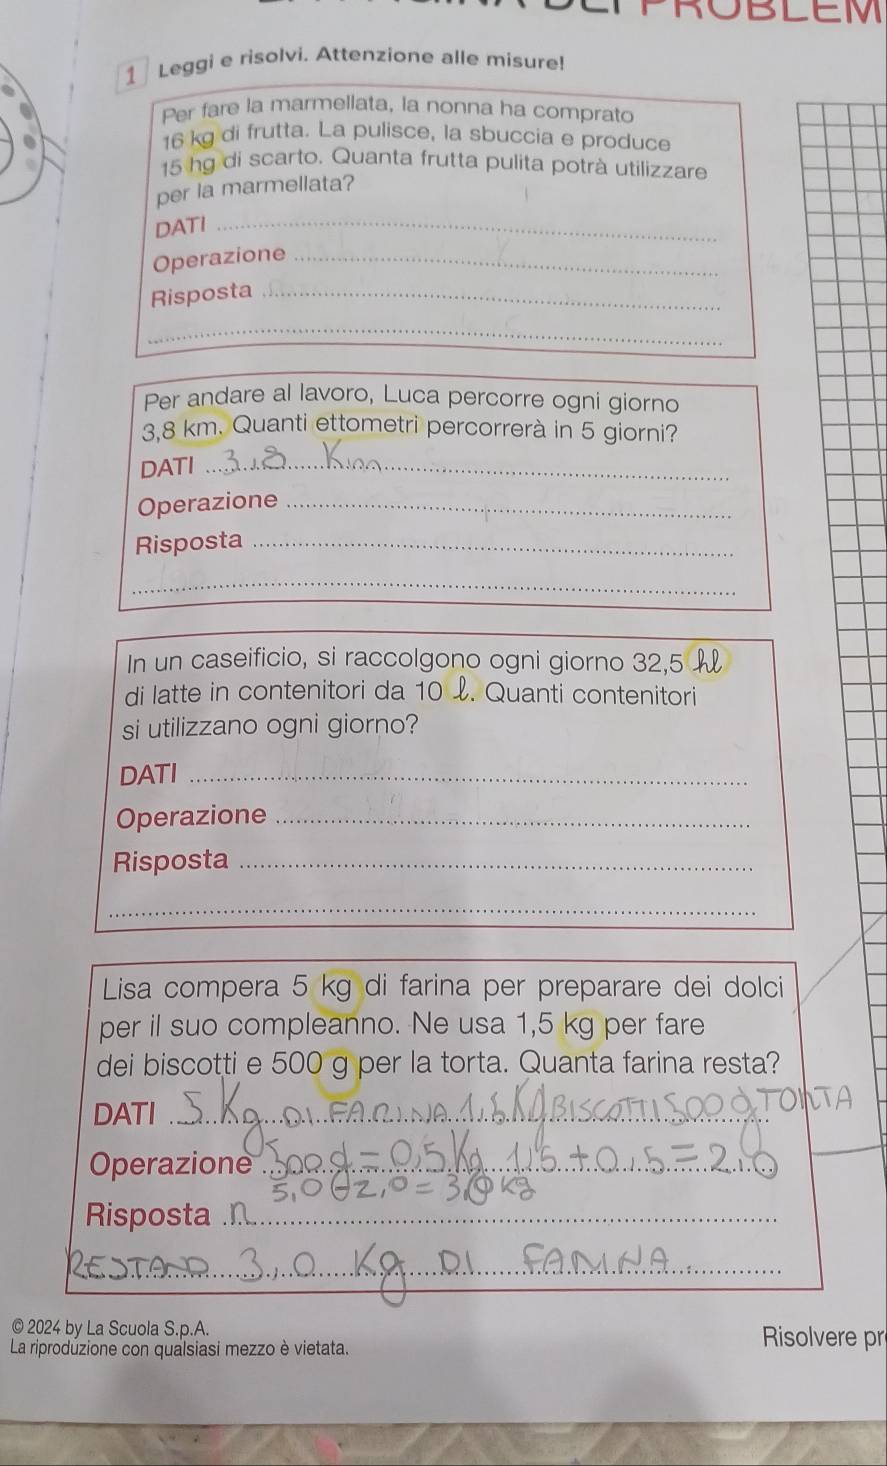 PROBLEM
1 Leggi e risolvi. Attenzione alle misure!
Per fare la marmellata, la nonna ha comprato
16 kg di frutta. La pulisce, la sbuccia e produce
15 hg di scarto. Quanta frutta pulita potrà utilizzare
per la marmellata?
DATI
Operazione
Risposta
Per andare al lavoro, Luca percorre ogni giorno
3,8 km. Quanti ettometri percorrerà in 5 giorni?
DATI 3,8 Km
Operazione
Risposta
In un caseificio, si raccolgono ogni giorno 32,5 hl
di latte in contenitori da 10 l. Quanti contenitori
si utilizzano ogni giorno?
DATI
Operazione
Risposta
Lisa compera 5 kg di farina per preparare dei dolci
per il suo compleanno. Ne usa 1,5 kg per fare
dei biscotti e 500 g per la torta. Quanta farina resta?
DATI 5 Kg DI FARINA 1,5 Kg BISCOTTI 500 g TORTA
Operazione 500 g = 0,5 Kg 1,5 + 0,5 = 2,0
5,0 - 2,0 = 3,0 kg
Risposta n
RESTANO 3,0 Kg DI FARINA
© 2024 by La Scuola S.p.A.
La riproduzione con qualsiasi mezzo è vietata.
Risolvere pr